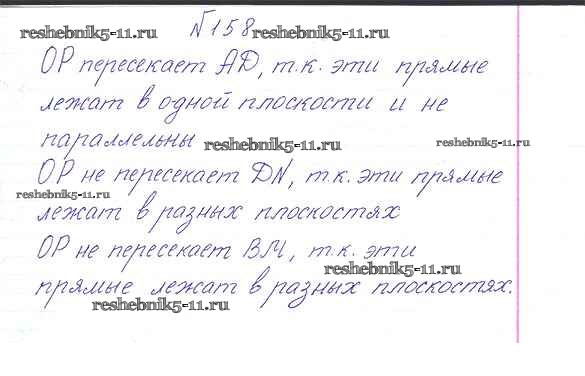 №158
reshebnik5-11.ru reshebnik5-11.ru
ОР пересекает AD, т.к. эти прямые
лежат в одной плоскости и не
параллельны
reshebnik5-11.ru reshebnik5-11.ru
ОР не пересекает DN, т.к. эти прямые
reshebnik5-11.ru
лежат в разных плоскостях
ОР не пересекает ВМ, т.к. эти
reshebnik5-11.ru
прямые лежат в разных плоскостях.
reshebnik5-11.ru